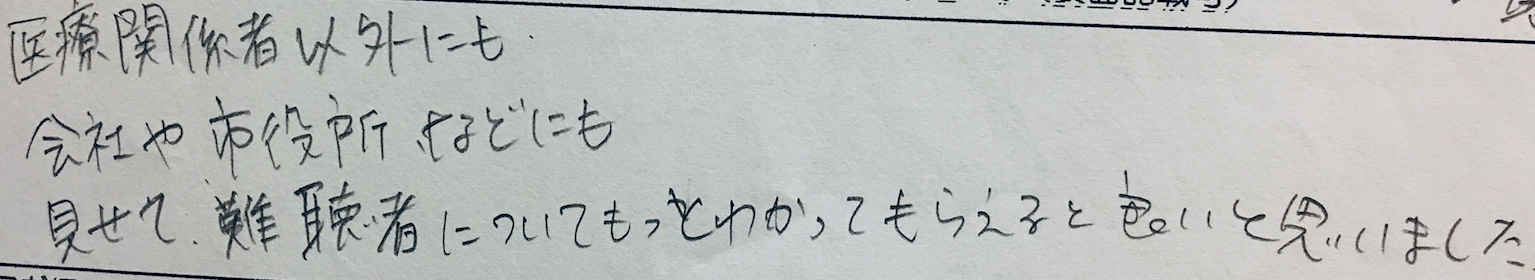 医療関係者以外にも
会社や市役所などにも
見せて、難聴者についてもっとわかってもらえると良いと思いました